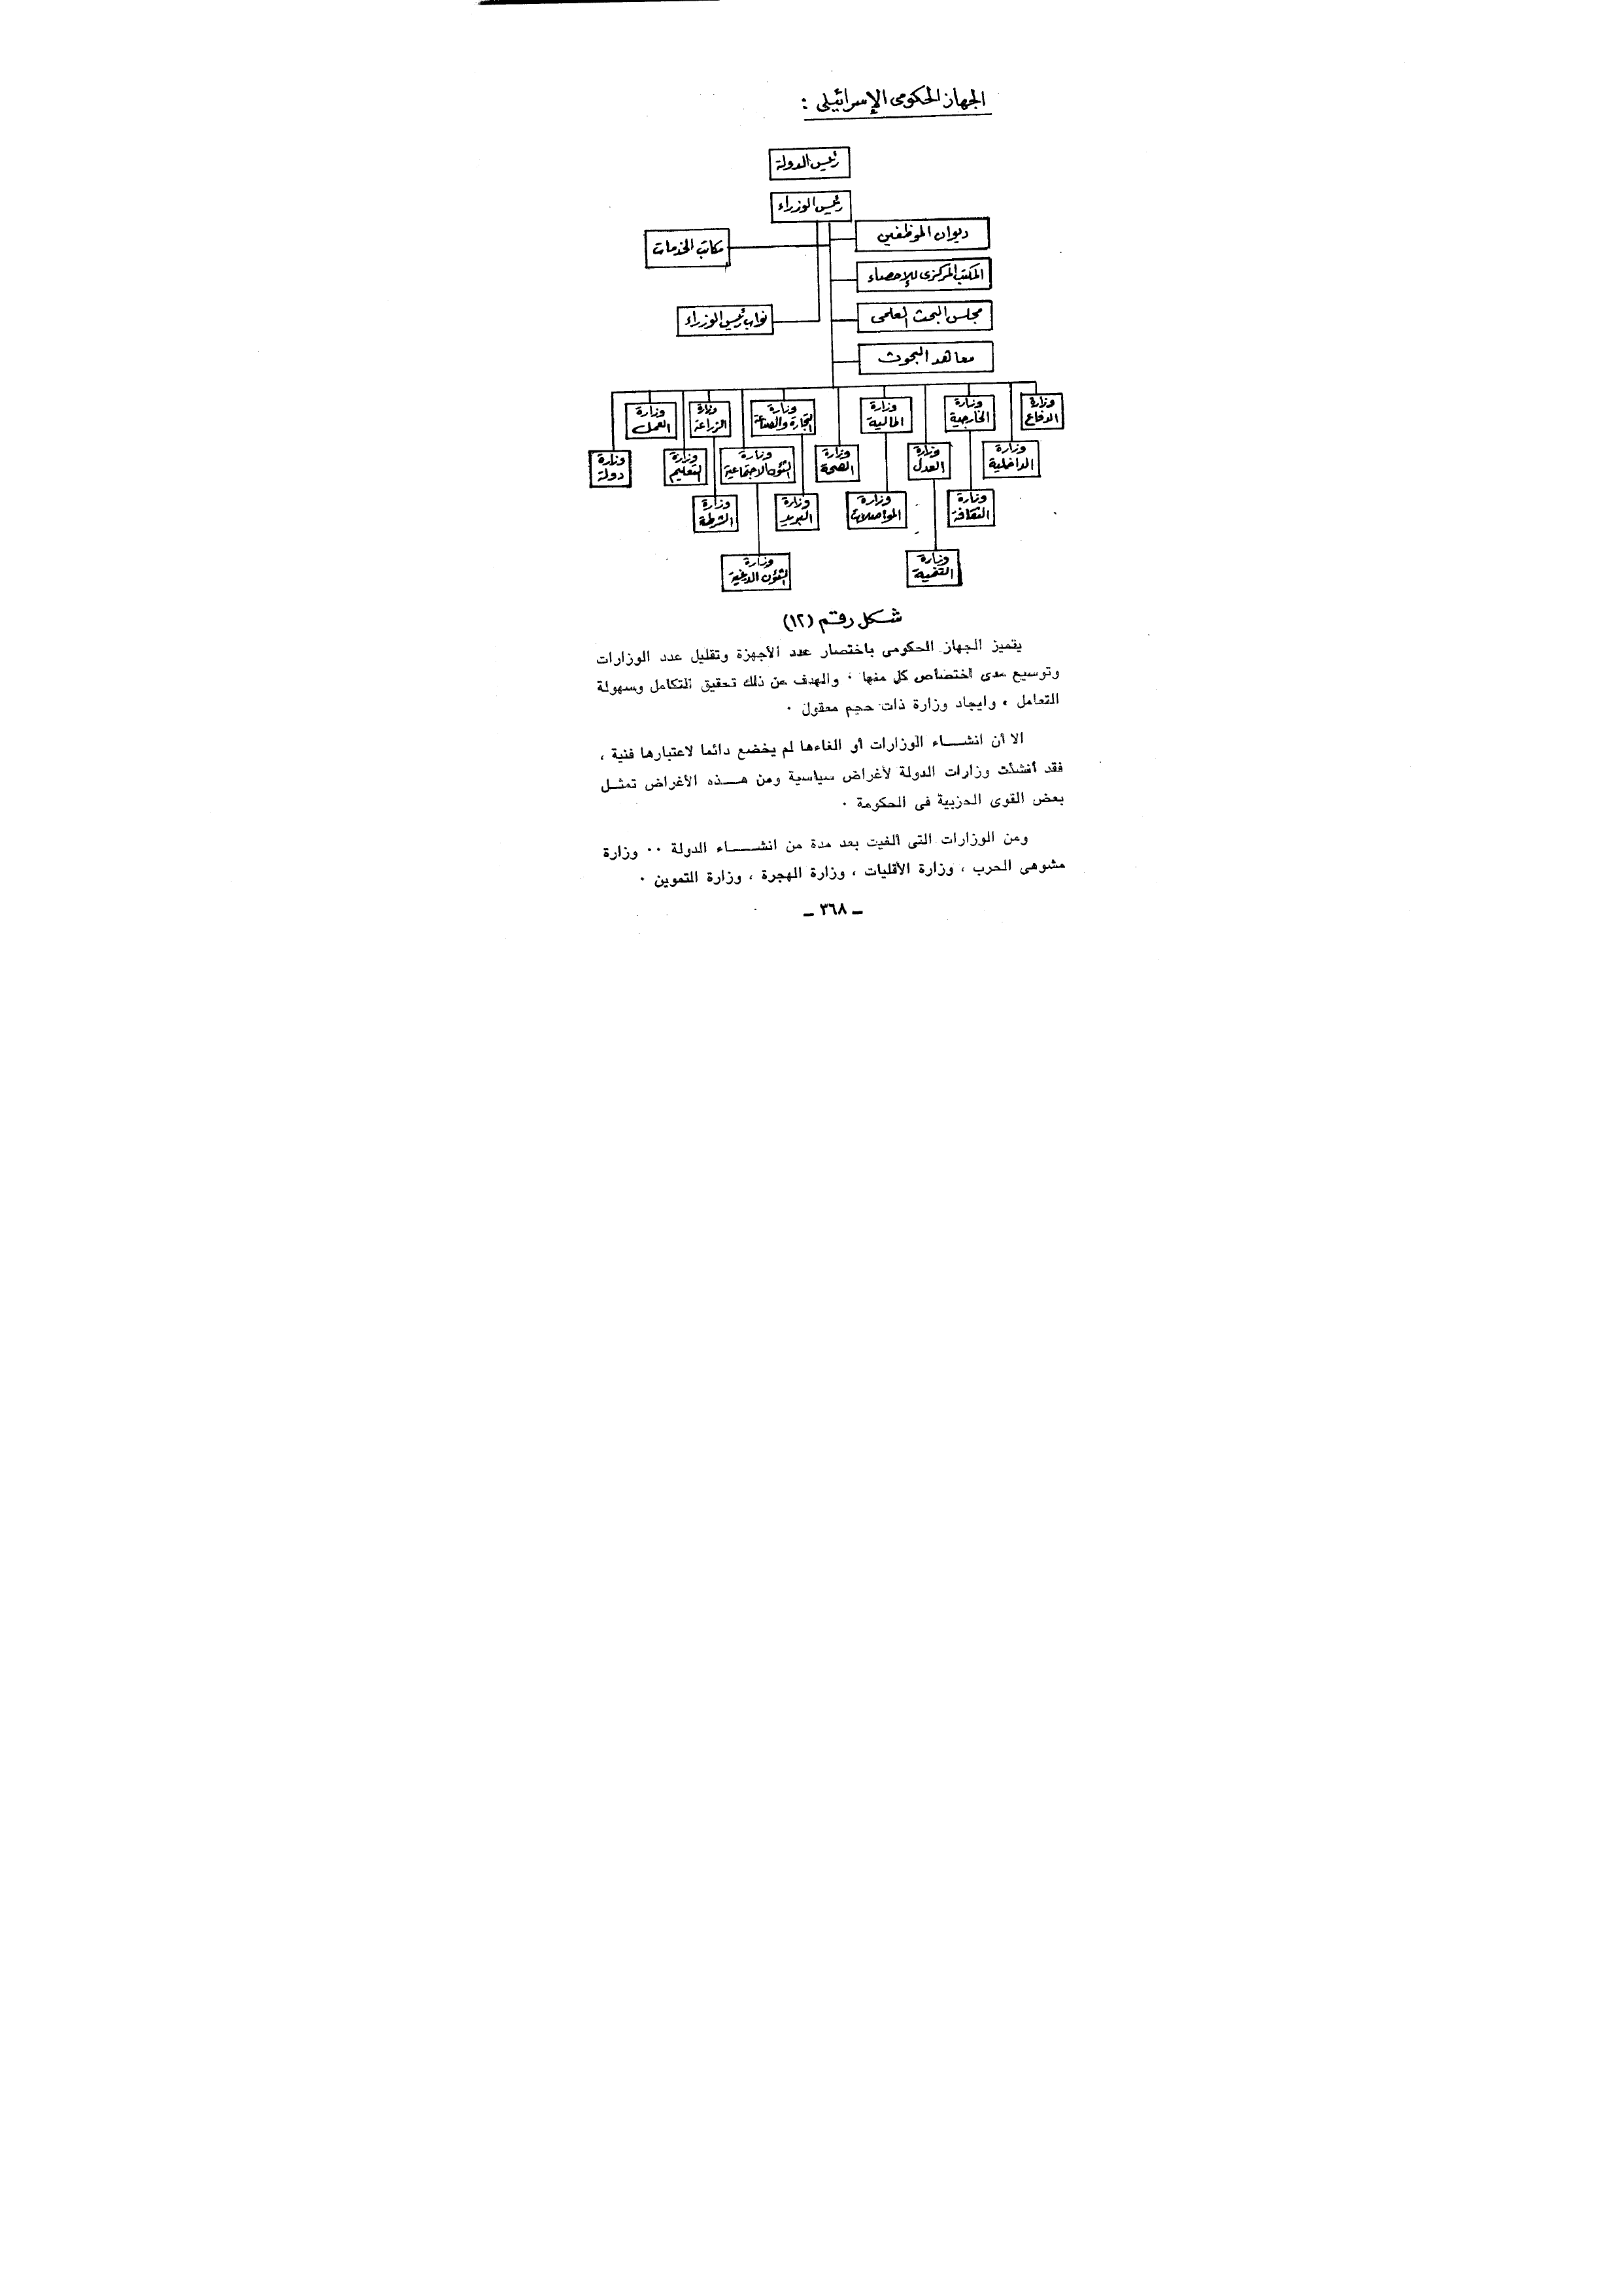 الجهاز الحكومى الإسرائيلى :
رئيس الدولة
رئيس الوزراء
ديوان الموظفين
مكاتب الخدمات
المكتب المركزى للإحصاء
مجلس البحث العلمى
نواب رئيس الوزراء
معاهد البحوث
وزارة الدفاع
وزارة الخارجية
وزارة المالية
وزارة التجارة والصناعة
وزارة الزراعة
وزارة العمل
وزارة الداخلية
وزارة العدل
وزارة الصحة
وزارة الشئون الاجتماعية
وزارة التعليم
وزارة دولة
وزارة الثقافة
وزارة المواصلات
وزارة البريد
وزارة الشرطة
وزارة
وزارة الشئون الدينية
شكل رقم (١٢)
يتميز الجهاز الحكومى باختصار عدد الأجهزة وتقليل عدد الوزارات
وتوسيع مدى اختصاص كل منها ٠ والهدف من ذلك تحقيق التكامل وسهولة
التعامل ، وايجاد وزارة ذات حجم معقول ٠
الا أن انشاء الوزارات أو الغاءها لم يخضع دائما لاعتبارها فنية ،
فقد أنشئت وزارات الدولة لأغراض سياسية ومن هذه الأغراض تمثل
بعض القوى الحزبية فى الحكومة ٠
ومن الوزارات التى ألغيت بعد مدة من انشاء الدولة ٠٠ وزارة
مشوهى الحرب ، وزارة الأقليات ، وزارة الهجرة ، وزارة التموين ٠
ــ ٣٦٨ ــ